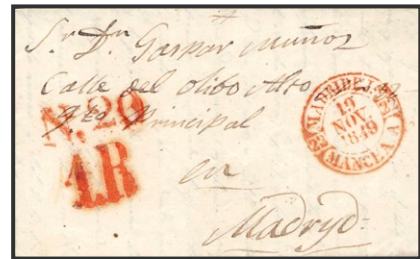 Sr. Dn. Gaspar Muñoz
Calle del Olibo Alto
Principal
N. 20
A.R
en
Madryd.
MADRID
19
NOV.
1849
MANCHA